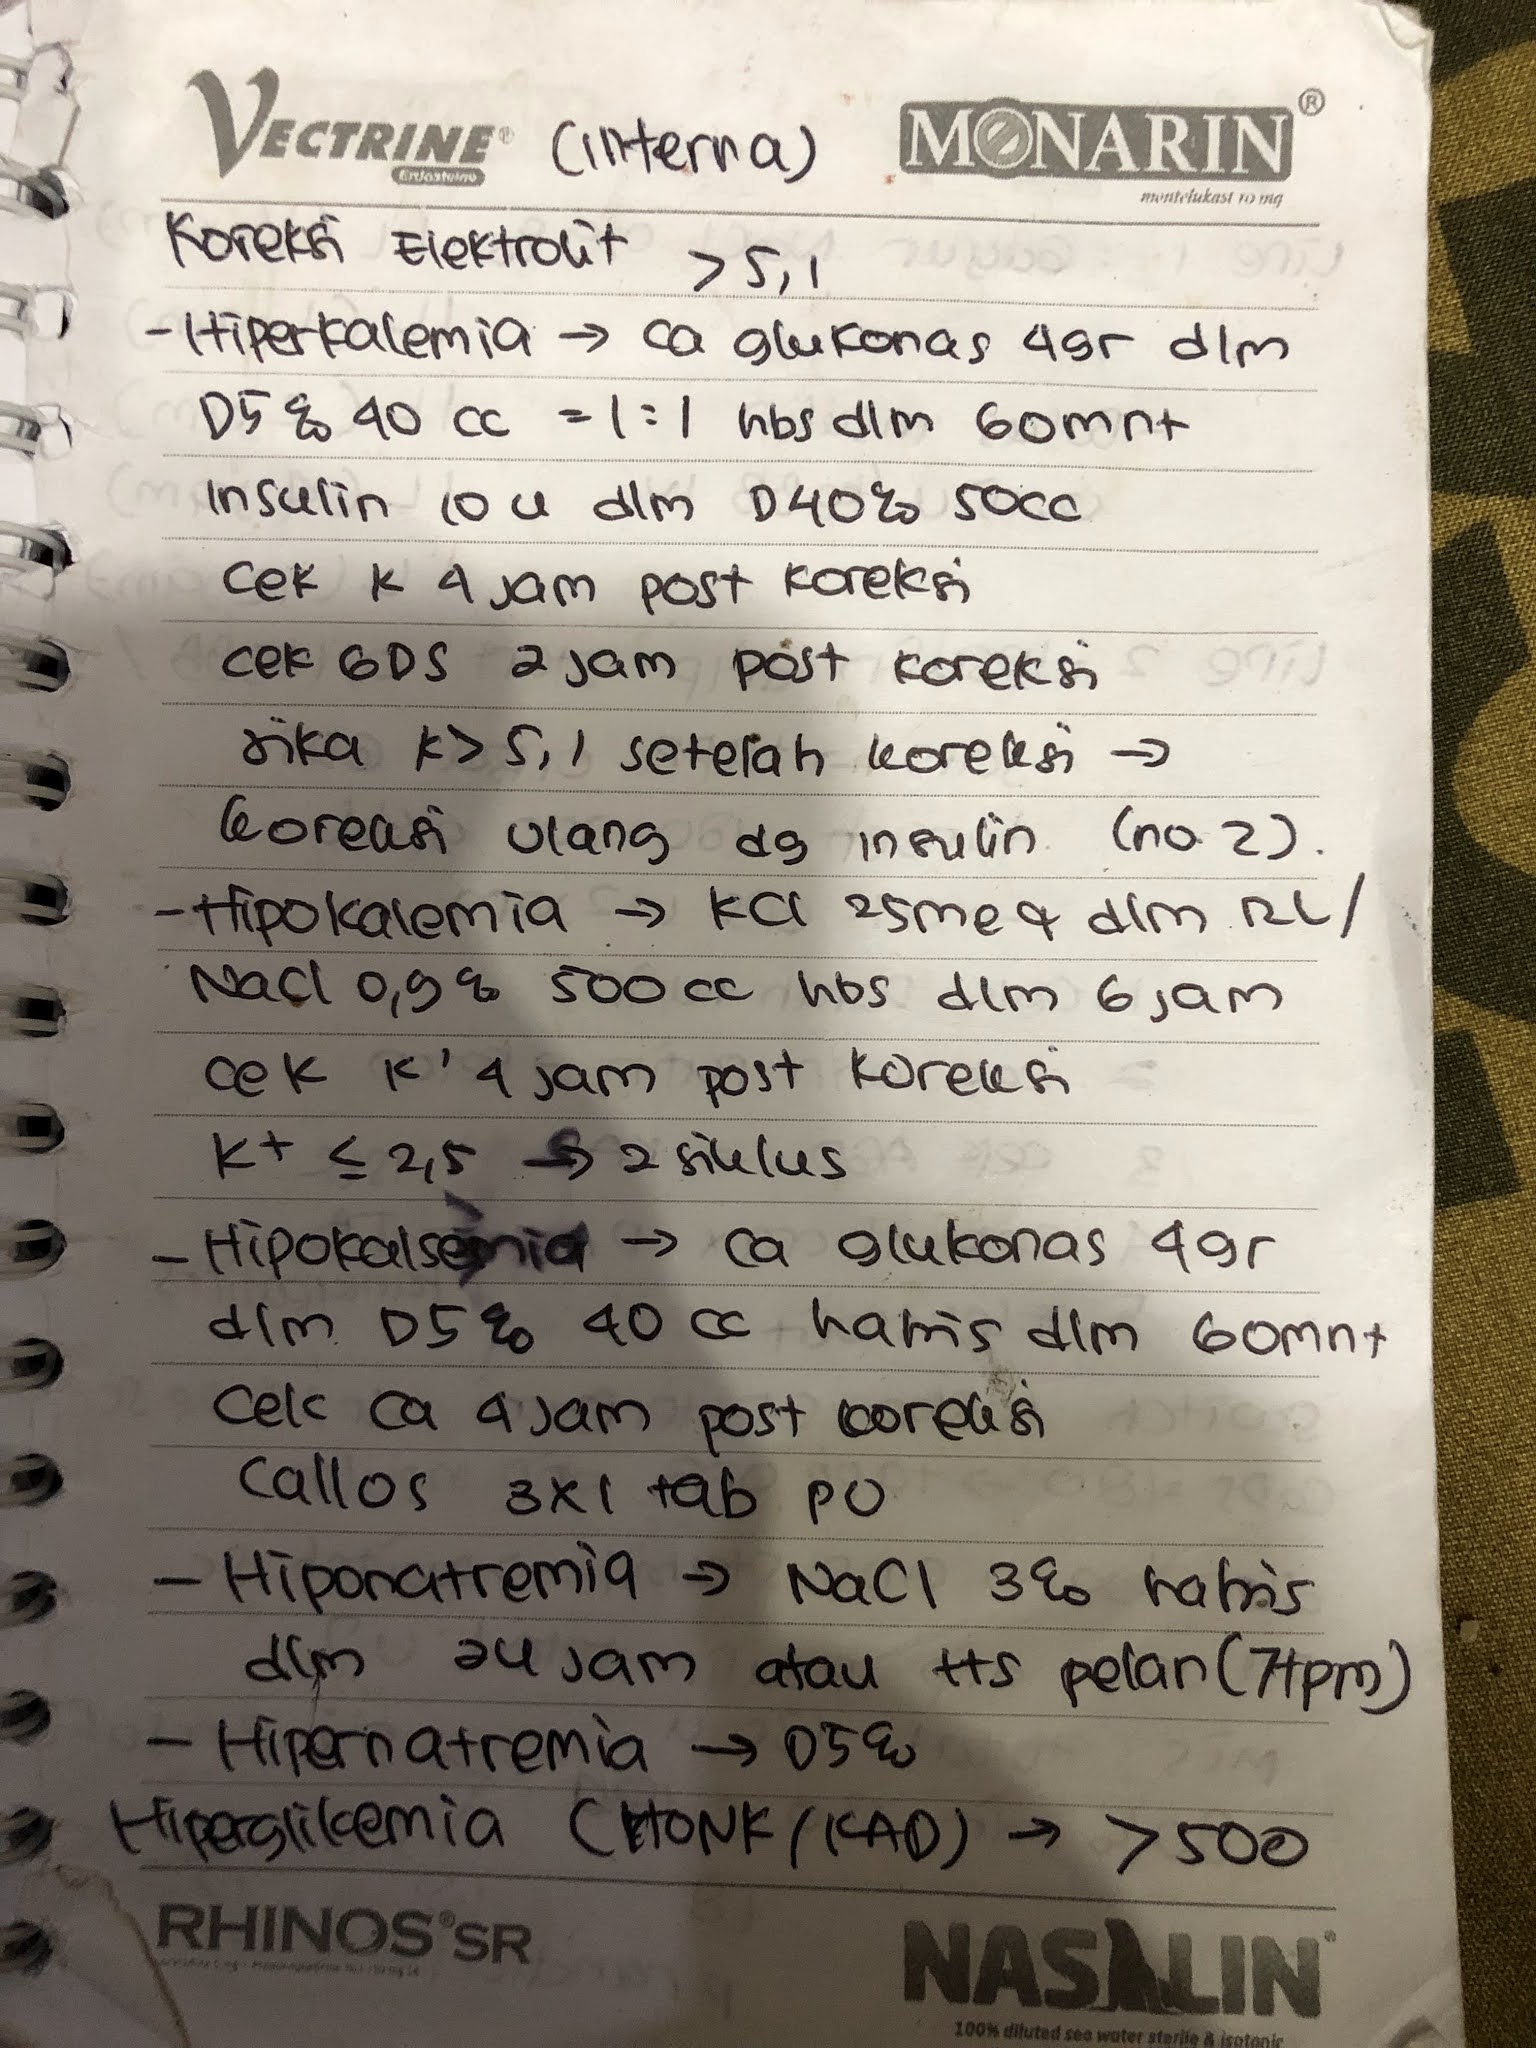 VECTRINE® (interna) MONARIN®
Erdosteine
montelukast 10 mg
Koreksi Elektrolit >5,1
- Hiperkalemia → ca glukonas 4gr dlm
D5% 40 cc = 1:1 hbs dlm 60mnt
insulin 10 u dlm D40% 50cc
cek K 4 jam post koreksi
cek GDS 2 jam post koreksi
jika K > 5,1 setelah koreksi →
koreksi ulang dg insulin (no 2).
- Hipokalemia → KCl 25meq dlm RL/
NaCl 0,9% 500 cc hbs dlm 6 jam
cek K' 4 jam post koreksi
K+ ≤ 2,5 → 2 siklus
- Hipokalsemia → ca glukonas 4gr
dlm D5% 40 cc habis dlm 60mnt
Cek ca 4 jam post koreksi
Callos 3x1 tab PO
- Hiponatremia → NaCl 3% habis
dlm 24 jam atau tts pelan (7tpm)
- Hipernatremia → D5%
Hiperglikemia (HONK/KAD) → >500
RHINOS® SR NASALIN®
100% diluted sea water sterile & isotonic